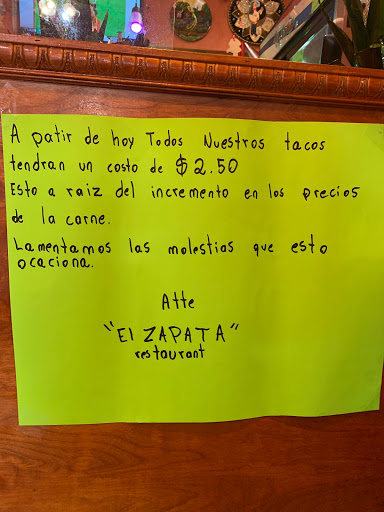 A patir de hoy Todos Nuestros tacos
tendran un costo de $2.50
Esto a raiz del incremento en los precios
de la carne.
Lamentamos las molestias que esto
ocaciona.
Atte
"El ZAPATA"
restaurant